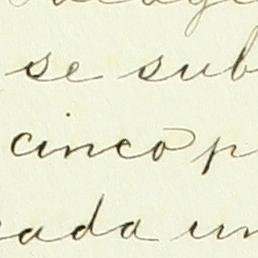 se sub
cinco p
cada un